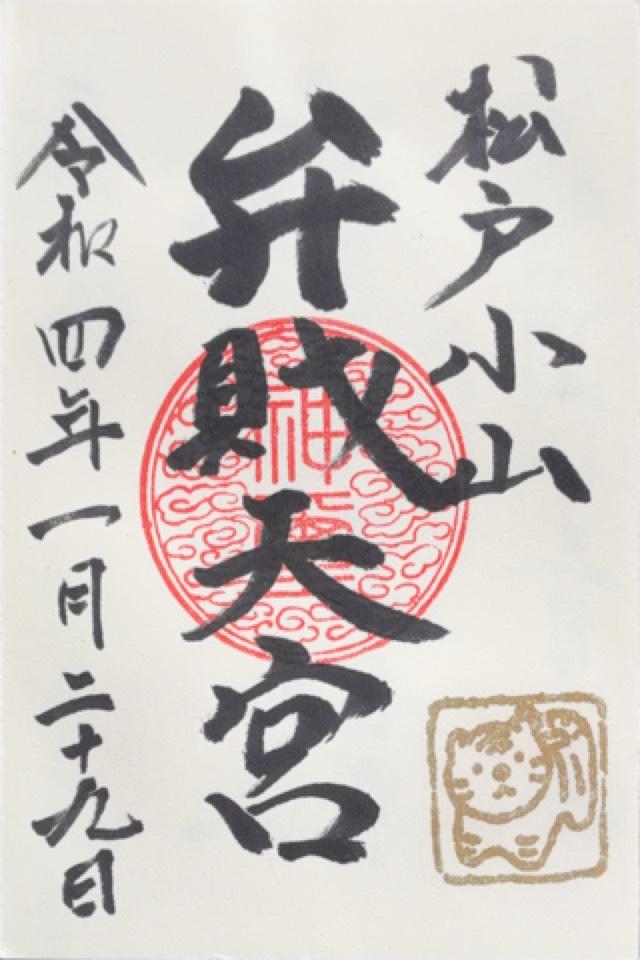 松戸小山
弁賎天宮
令和四年一月二十九日
神璽